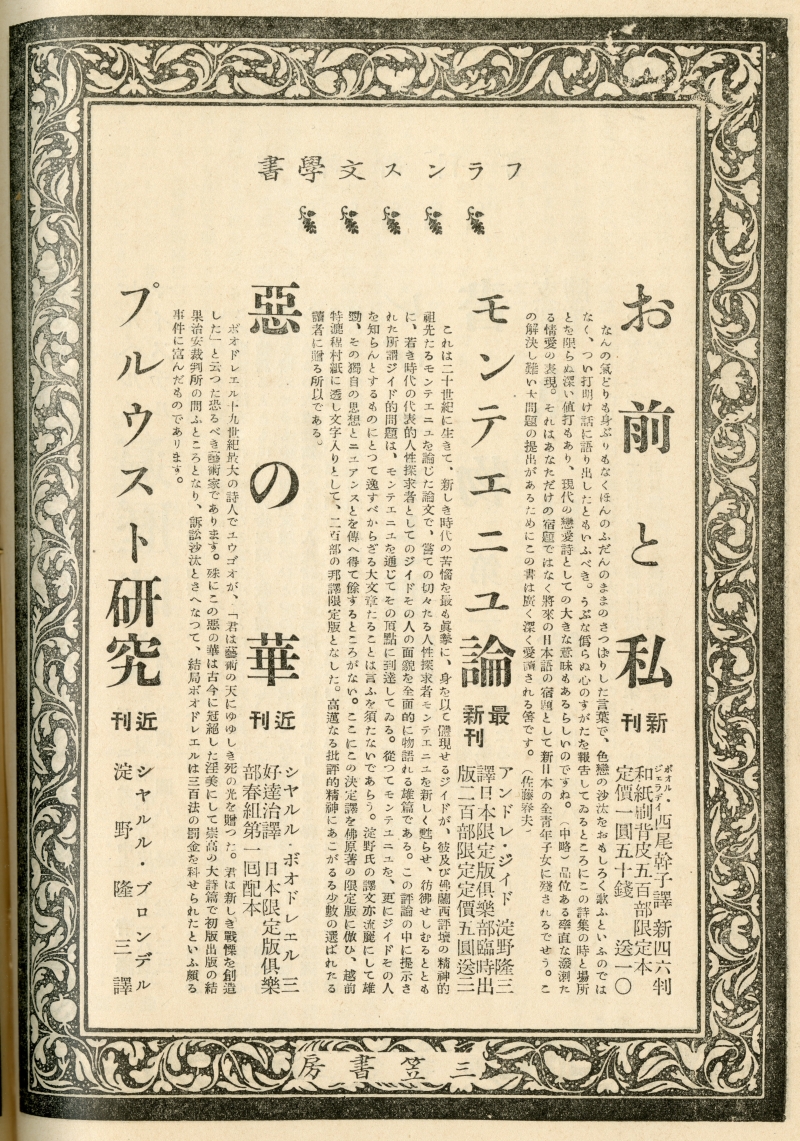 フランス文學書
お前と私
新刊
ポオル・ジェラルディ 西尾幹子譯 新四六判
和紙刷背皮五百部限定本
定價一圓五十錢 送一〇
なんの氣どりも身ぶりもなくほんのふだんのままのさつぱりした言葉で、色戀の沙汰をおもしろく歌ふといふのでは
なく、つい打明け話に語り出したともいふべき。うぶな僞らぬ心のすがたを報告してゐるところにこの詩集の時と場所
とを限らぬ深い値打もあり、現代の戀愛詩としての大きな意味もあるらしいのですね。(中略)品位ある率直な潑溂た
る情愛の表現。それはあなただけの宿題ではなく將來の日本語の宿題として新日本の全青年子女に殘されるでせう。こ
の解決し難い大問題の提出があるためにこの書は廣く深く愛讀される筈です。(佐藤春夫)
モンテエニュ論
最新刊
アンドレ・ジイド 淀野隆三
譯日本限定版俱樂部臨時出
版二百部限定定價五圓送三
これは二十世紀に生きて、新しき時代の苦惱を最も眞摯に、身を以て體現せるジイドが、彼及び佛蘭西評壇の精神的
祖先たるモンテエニュを論じた論文で、嘗ての切々たる人性探求者モンテエニュを新しく甦らせ、彷彿せしむるととも
に、若き時代の代表的人性探求者としてのジイドその人の面貌を全面的に物語れる雄篇である。この評論の中に提示さ
れた所謂ジイド的問題は、モンテエニュを通じてその頂點に到達してゐる。從つてモンテエニュを、更にジイドその人
を知らんとするものにとつて逸すべからざる大文章たることは言ふを須たないであらう。淀野氏の譯文亦流麗にして雄
勁、その獨自の思想とニュアンスとを傳へ得て餘すところがない。ここにこの決定譯を佛原著の限定版に倣ひ、越前
特漉程村紙に透し文字入りとして、二百部の邦譯限定版となした。高邁なる批評的精神にあこがるる少數の選ばれたる
讀者に贈る所以である。
惡の華
近刊
シヤルル・ボオドレエル 三
好達治譯 日本限定版俱樂
部春組第一囘配本
ボオドレエル十九世紀最大の詩人でユウゴオが、「君は藝術の天にゆゆしき死の光を贈つた。君は新しき戰慄を創造
した」と云つた恐るべき藝術家であります。殊にこの惡の華は古今に冠絕した淫美にして崇高の大詩篇で初版出版の結
果治安裁判所の問ふところとなり、訴訟沙汰とさへなつて、結局ボオドレエルは三百法の罰金を科せられたといふ頗る
事件に富んだものであります。
プルウスト研究
近刊
シヤルル・ブロンデル
淀野隆三譯
三笠書房